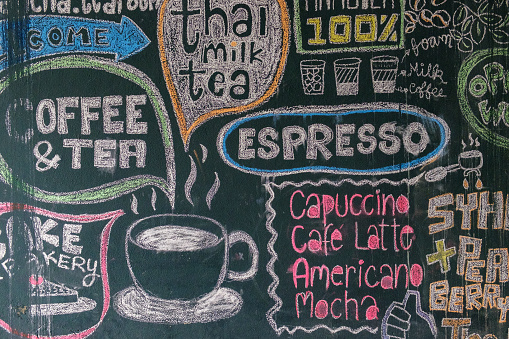 COME
thai
milk
tea
100%
foam
Milk
Coffee
COFFEE
& TEA
ESPRESSO
CAKE
BAKERY
Capuccino
Cafe Latte
Americano
Mocha
+ PEA
BERRY